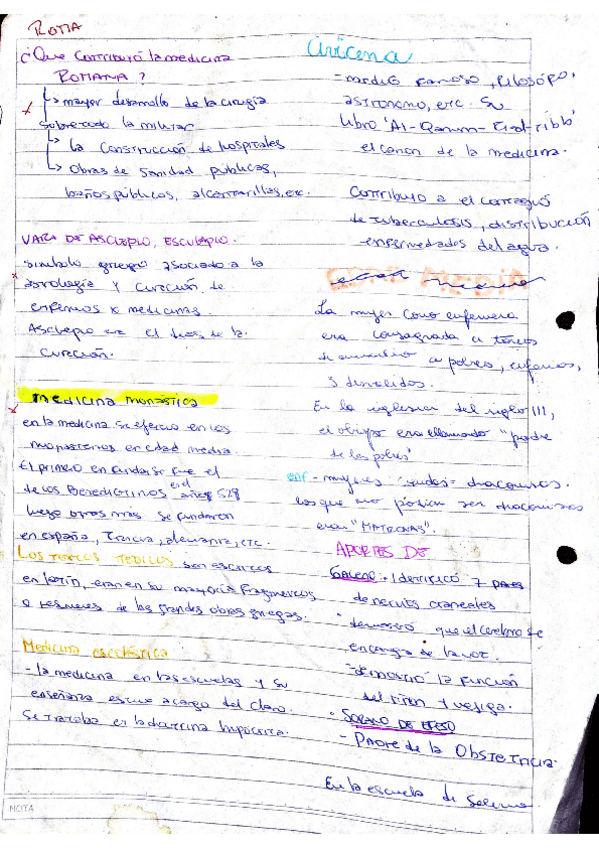 ROMA
¿Que contribuyó la medicina
ROMANA?
mayor desarrollo de la cirugía
sobretodo la militar
la construcción de hospitales
Obras de Sanidad publicas,
baños públicos, alcantarillas, etc.
VARA DE ASCLEPIO, ESCULAPIO.
simbolo griego asociado a la
astrología y curación de
enfermos x medicinas.
Asclepio era el dios de la
curación.
medicina monástica
en la medicina se ejercio en los
monasterios en edad media.
El primero en fundarse fue el
de los Benedictinos en el año 529
luego otros mas se fundaron
en españa, Francia, alemania, etc.
Los textos teoricos son escritos
en latín, eran en su mayoría fragmentos
o resumenes de las grandes obras griegas.
Medicina escolástica
- la medicina en las escuelas y su
enseñanza estuvo a cargo del clero.
Se trataba en la doctrina hipocrática.
Avicena
- medico famoso, filosófo,
astronomo, etc. Su
libro "Al-Qanun-
el canon de la medicina.
Contribuyo a el contagio
de tuberculosis, distribución
enfermedades del agua.
EDAD MEDIA
La mujer como enfermera
era consagrada a tareas
a pobres, enfermos,
En la iglesia del siglo III,
el obispo era llamado "padre
de los pobres"
- mujeres viudas = diaconisas.
las que no podian ser diaconisas
eran "MATRONAS".
APORTES DE
GALENO - Identificó 7 pares
de nervios craneales
- demostró que el cerebro se
encarga de la voz.
- demostró la función
del riñon y vejiga.
- SORANO DE EFESO
- PADRE de la OBSTETRICIA.
En la escuela de Salerno.
NOTA